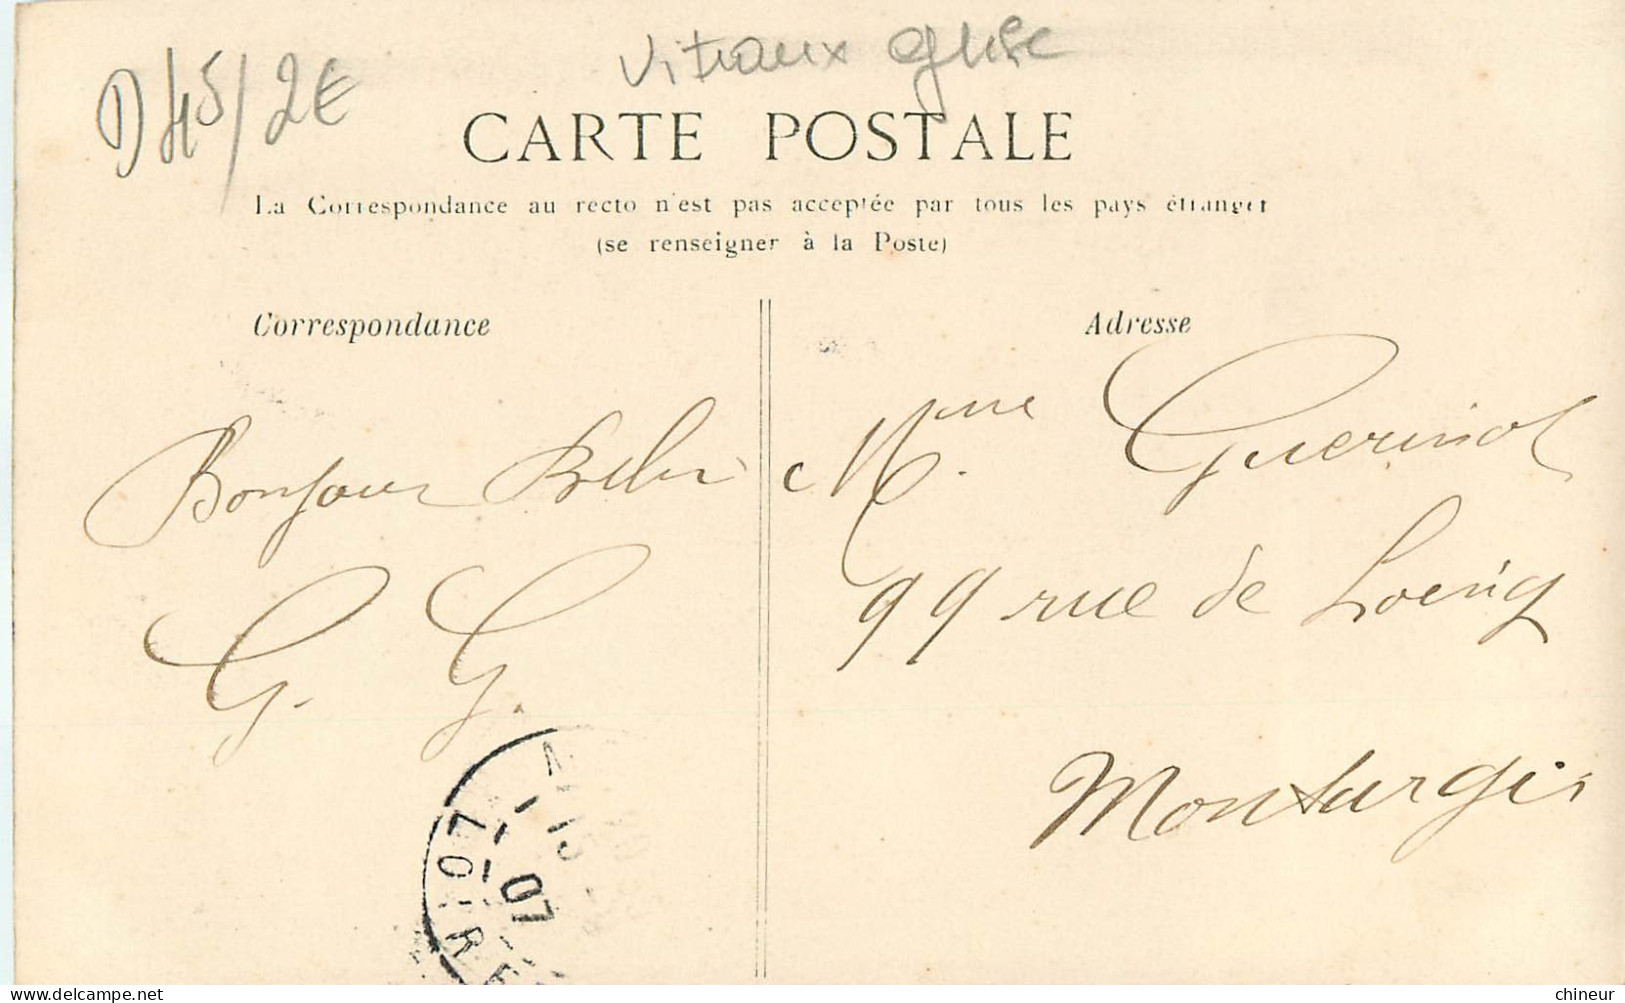 Vitraux eglise
D 45 / 2€
CARTE POSTALE
La Correspondance au recto n'est pas acceptée par tous les pays étranger
(se renseigner à la Poste)
Correspondance
Bonjour
G. G.
Adresse
Mme Guerinot
99 rue de Loing
Montargis
LOIRET
15
07
chineur